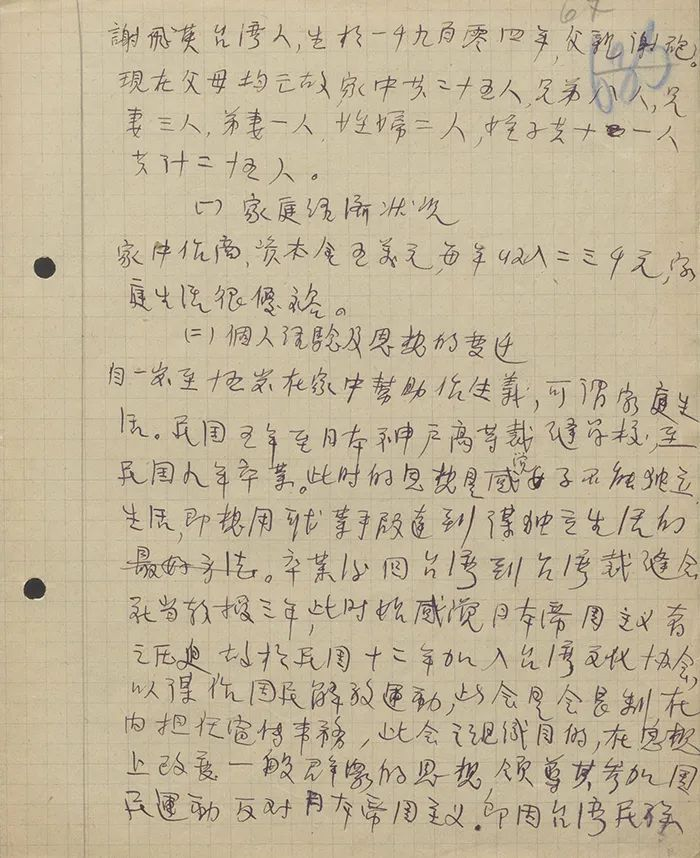 67
謝飛英台湾人,生於一千九百零四年,父親謝砲。
現在父母均亡故家中共二十五人,兄弟八人,兄
妻三人,弟妻一人,姪婦二人,姪子共十一人
共计二十五人。
(一) 家庭経済状况
家中作商,资本金五美元,每年收入二三千元,家
庭生活很優裕。
(二) 個人経驗及思想的变迁
自一岁至十五岁在家中幫助作生義,可谓家庭生
活。民国五年至日本神戸高等裁縫学校,至
民国九年卒業。此时的思想是感覚女子不能独立
生活,即想用职業手段達到謀独立生活的
最好方法。卒業後回台湾到台湾裁縫会
社当教授三年,此时始感覚日本帝国主义者
之压迫故於民国十二年加入台湾文化協会,
以谋作国民解放運動,此会是会長制在
内担任宣传事務,此会之组織目的,在思想
上改变一般群衆的思想,领導其参加国
民運動反对日本帝国主义.即因台湾民族